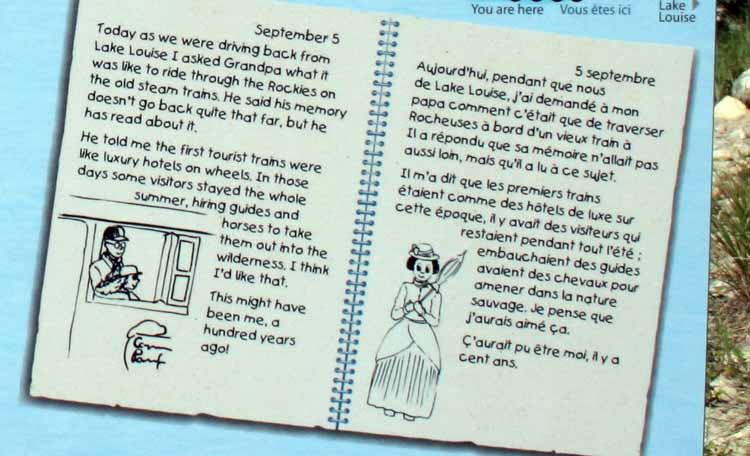 You are here Vous êtes ici
Lake
Louise
September 5
Today as we were driving back from
Lake Louise I asked Grandpa what it
was like to ride through the Rockies on
the old steam trains. He said his memory
doesn't go back quite that far, but he
has read about it.
He told me the first tourist trains were
like luxury hotels on wheels. In those
days some visitors stayed the whole
summer, hiring guides and
horses to take
them out into the
wilderness. I think
I'd like that.
This might have
been me, a
hundred years
ago!
5 septembre
Aujourd'hui, pendant que nous
de Lake Louise, j'ai demandé à mon
papa comment c'était que de traverser
Rocheuses à bord d'un vieux train à
Il a répondu que sa mémoire n'allait pas
aussi loin, mais qu'il a lu à ce sujet.
Il m'a dit que les premiers trains
étaient comme des hôtels de luxe sur
cette époque, il y avait des visiteurs qui
restaient pendant tout l'été ;
embauchaient des guides
avaient des chevaux pour
amener dans la nature
sauvage. Je pense que
j'aurais aimé ça.
Ç'aurait pu être moi, il y a
cent ans.